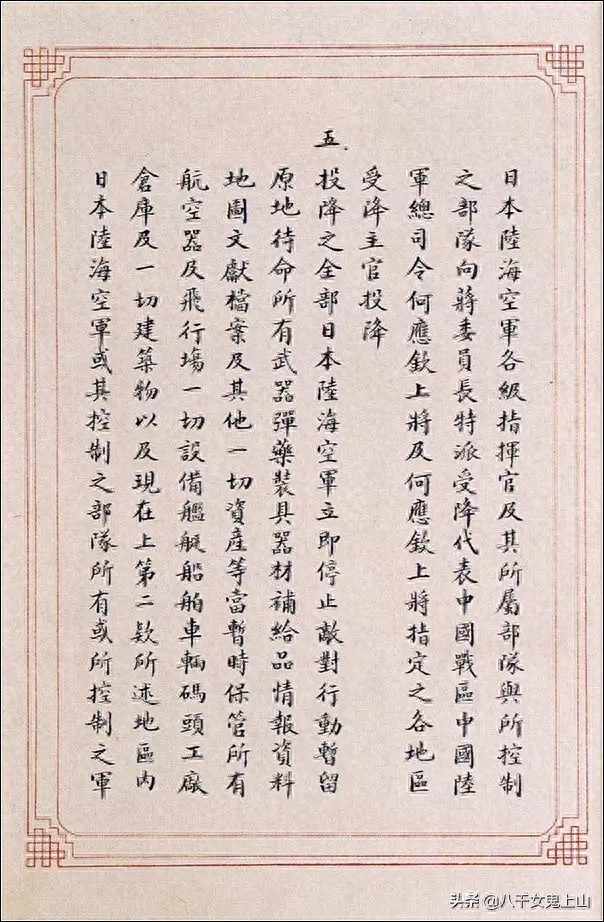 日本陸海空軍各級指揮官及其所屬部隊與所控制
之部隊向蔣委員長特派受降代表中國戰區中國陸
軍總司令何應欽上將及何應欽上將指定之各地區
受降主官投降
五、投降之全部日本陸海空軍立即停止敵對行動暫留
原地待命所有武器彈藥裝具器材補給品情報資料
地圖文獻檔案及其他一切資產等當暫時保管所有
航空器及飛行場一切設備艦艇船舶車輛碼頭工廠
倉庫及一切建築物以及現在上第二款所述地區內
日本陸海空軍或其控制之部隊所有或所控制之軍
头条 @八千女鬼上山